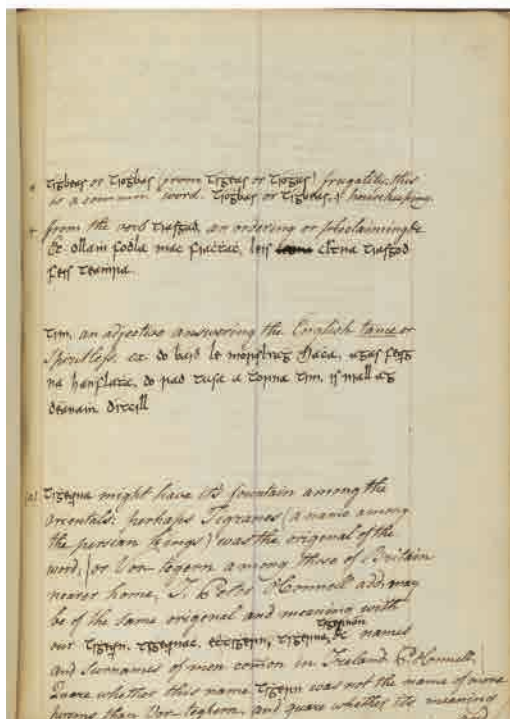 + Tigbeas or Tiogbas (from Tigeas or Tiogus) frugality, this
is a common word. Tiogbas or Tigbeas, housekeeping.
+ from the verb Triasgad, an ordering or proclaiming &c
ollam fodla mac fiachac, leis
feis Teamra.
Tim, an adjective answering the English tame or
Spiritless. ex. do agas
na do rad a Torna tim, is mall ag
deanam
(a) Tigerna might have its fountain among the
orientals; perhaps Tigranes (a name among
the persian Kings) was the original of the
word, or Vor-tegern among those of Britain
nearer home, I Peter O Connell add, may
be of the same original and meaning with
our Tigern, Tigernac, Tigernan &c names
and Surnames of men common in Ireland P. O Connell,
Quare whether this name Tigern was not the name of more
than Vor-teghern, and quare whether its meaning